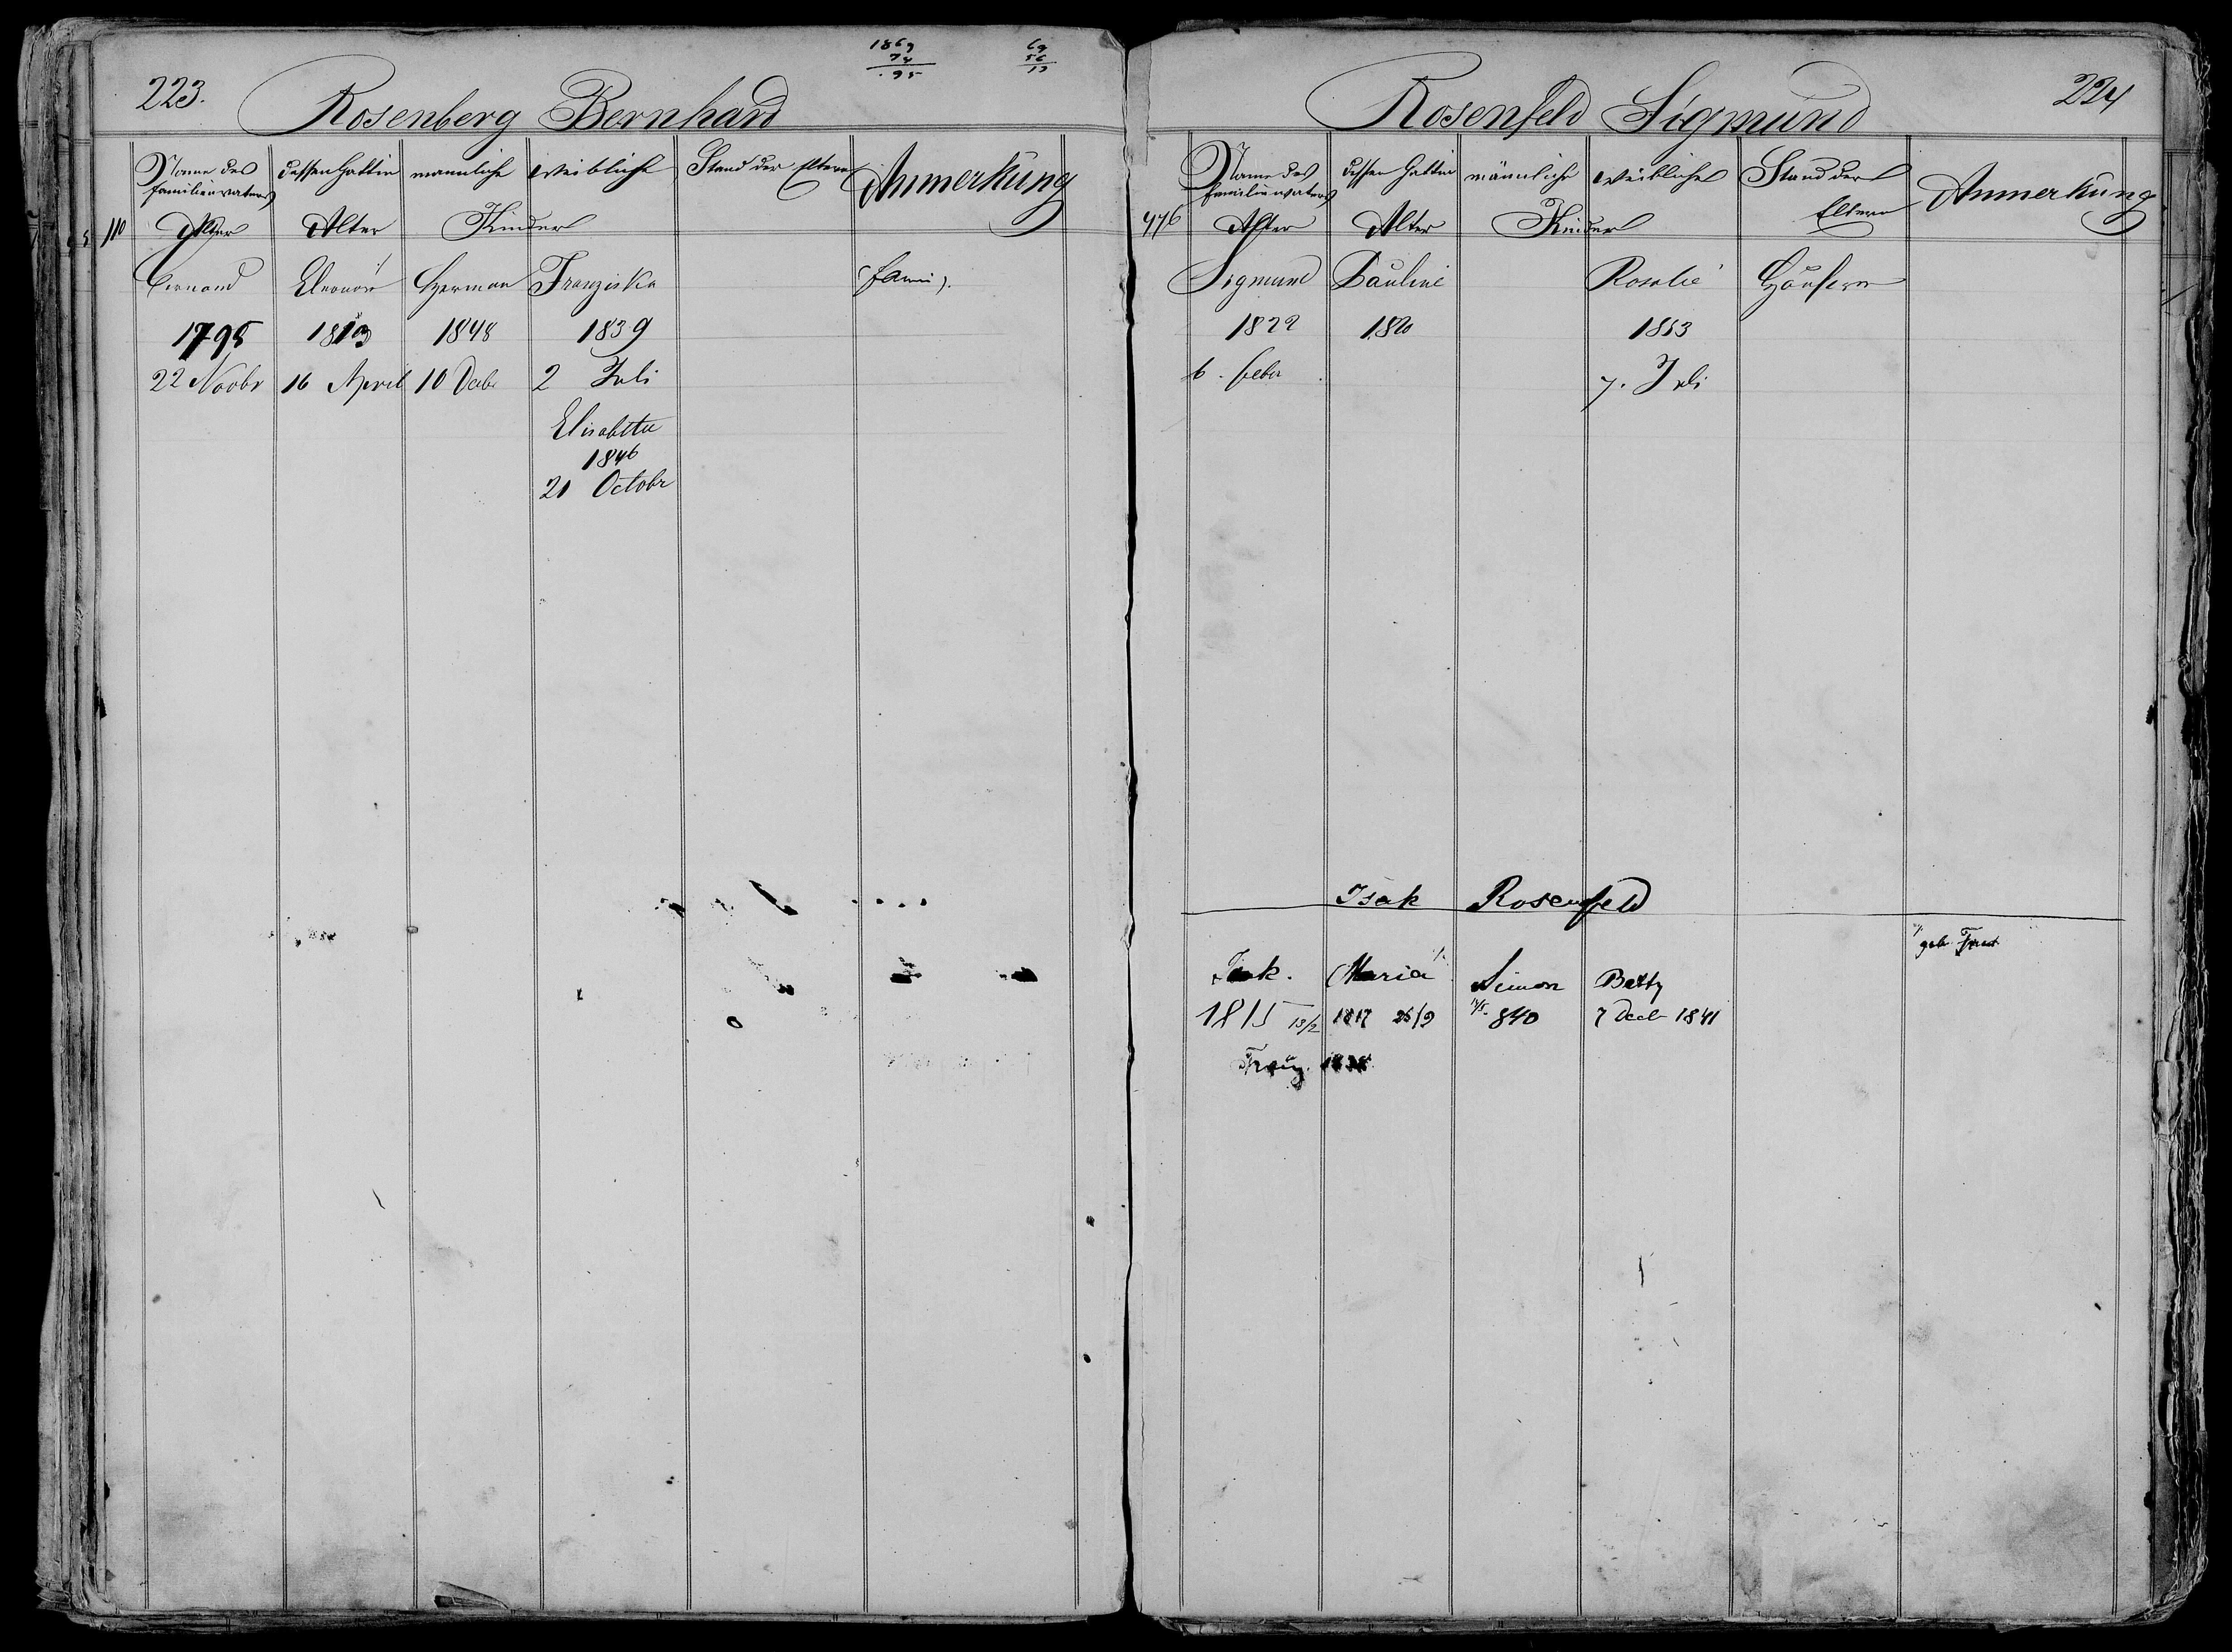 1869
74
95
69
56
13
223.
Rosenberg Bernhard
Name des Familienvaters dessen Gattin männliche weibliche Stand der Eltern Anmerkung
110 Alter Alter Kinder
Bernard Eleonore Herman Franziska
1795 1813 1848 1839
22 Novbr 16 April 10 Debr 2 Juli
Elisabetta
1846
21 Octobr
224
Rosenfeld Sigmund
Name des Familienvaters dessen Gattin männliche weibliche Stand der Eltern Anmerkung
476 Alter Alter Kinder
Sigmund Pauline Rosalie Hausirer
1822 1820 1853
6. Feber 7. Juli
Isak Rosenfeld
geb.
Isak. Maria Simon Betty
1815 13/2 1817 26/9 840 7 Decb 1841
Trauung 1838